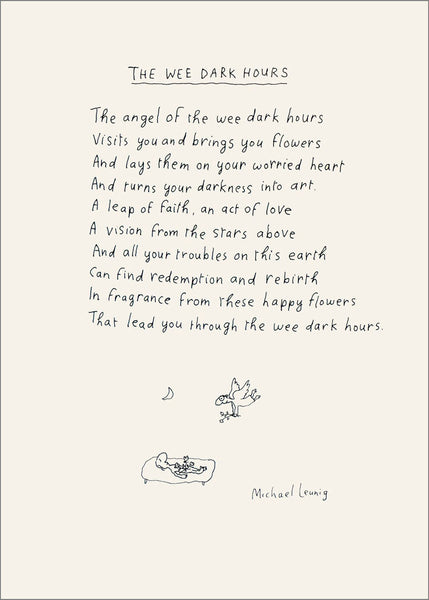 THE WEE DARK HOURS
The angel of the wee dark hours
Visits you and brings you flowers
And lays them on your worried heart
And turns your darkness into art.
A leap of faith, an act of love
A vision from the stars above
And all your troubles on this earth
Can find redemption and rebirth
In fragrance from these happy flowers
That lead you through the wee dark hours.
Michael Leunig